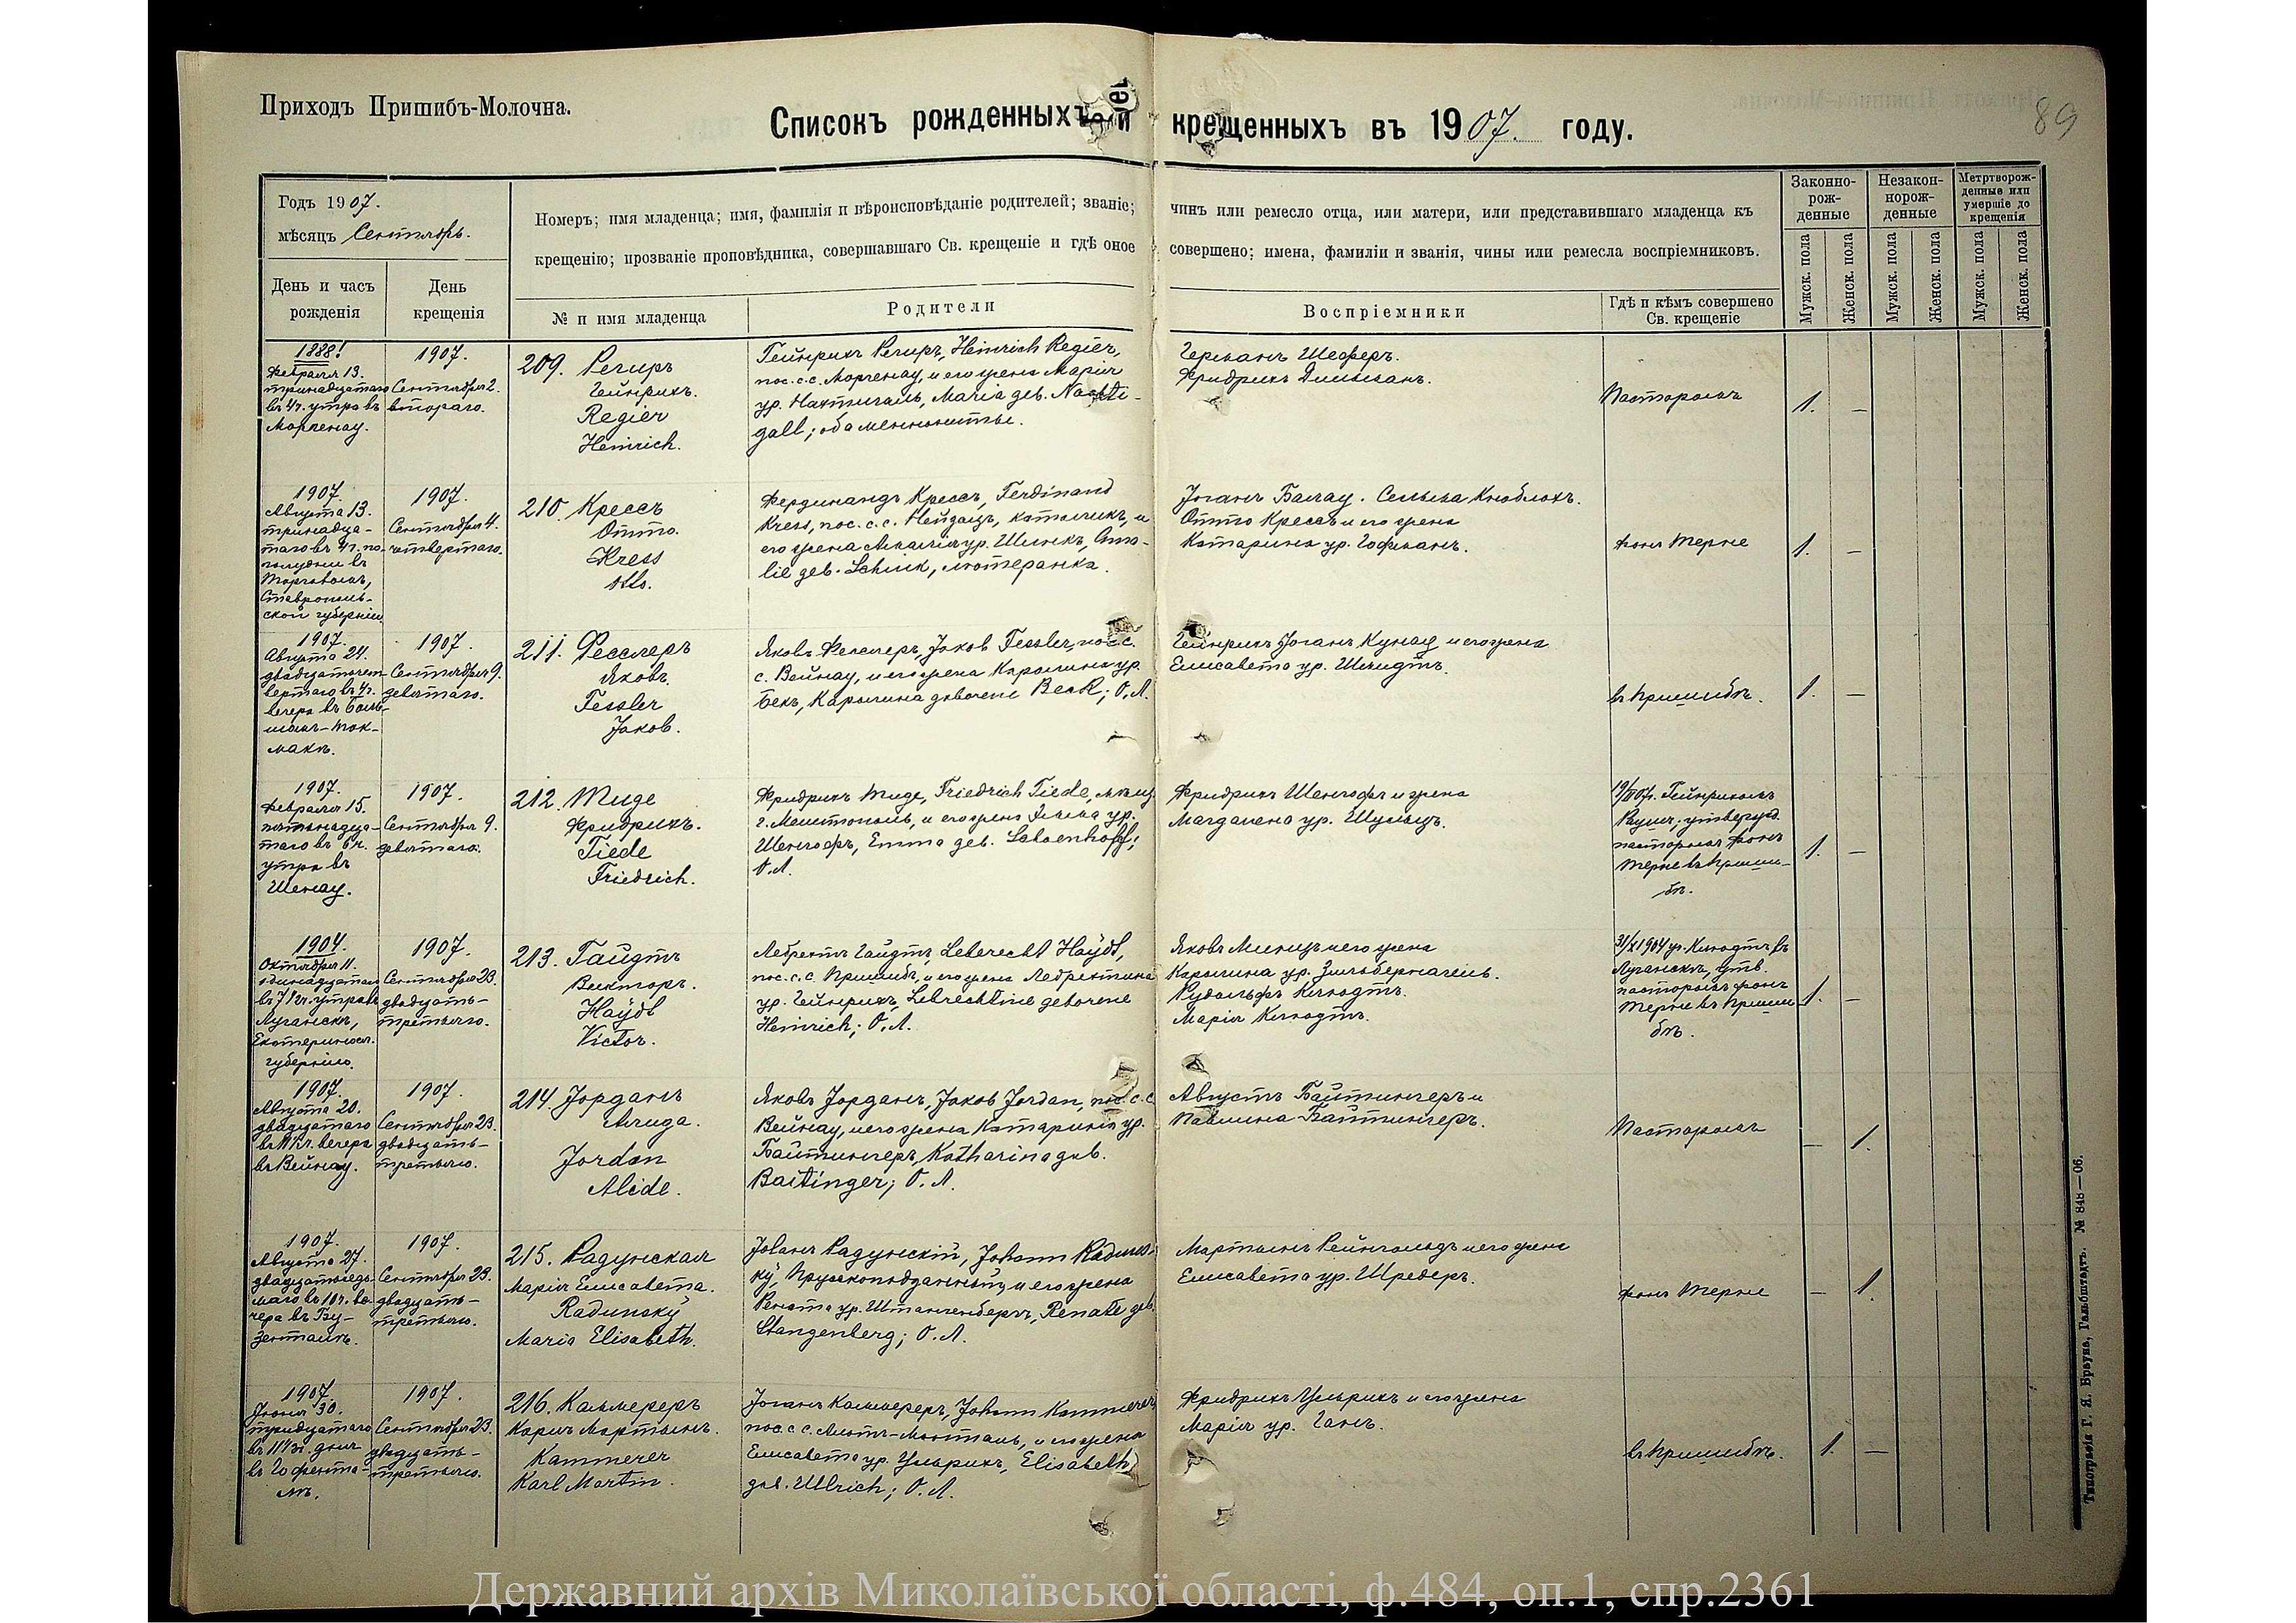 Приходъ Пришибъ-Молочна.
89
Списокъ рожденныхъ и крещенныхъ въ 1907. году.
Годъ 1907.
мѣсяцъ Сентябрь.
День и часъ рожденія
День крещенія
Номеръ; имя младенца; имя, фамилія и вѣроисповѣданіе родителей; званіе; чинъ или ремесло отца, или матери, или представившаго младенца къ
крещенію; прозваніе проповѣдника, совершавшаго Св. крещеніе и гдѣ оное совершено; имена, фамиліи и званія, чины или ремесла воспріемниковъ.
№ и имя младенца
Родители
Воспріемники
Гдѣ и кѣмъ совершено Св. крещеніе
Законно-рож-денные
Незакон-норож-денные
Метртворож-денные или умершіе до крещенія
Мужск. пола
Женск. пола
Мужск. пола
Женск. пола
Мужск. пола
Женск. пола
1888!
Февраля 13.
тринадцатаго
въ 4ч. утра въ
Моргенау.
1907.
Сентября 2.
втораго.
209. Региръ
Гейнрихъ.
Regier
Heinrich.
Гейнрихъ Региръ, Heinrich Regier,
пос. с.с. Моргенау, и его жена Марія
ур. Нахтигаль, Maria geb. Nachti-
gall; оба меннониты.
Германъ Шеферъ.
Фридрихъ Дильманъ.
Пасторомъ
1. —
1907.
Августа 13.
тринадца-
таго въ 4ч. по-
полудни въ
Торговомъ,
Ставрополь-
ской губерніи.
1907.
Сентября 4.
четвертаго.
210. Крессъ
Отто.
Kress
Otto.
Фердинандъ Крессъ, Ferdinand
Kress, пос. с.с. Нейдацъ, католикъ, и
его жена Амалія ур. Шинкъ, Ama-
lie geb. Schink, лютеранка.
Іоганъ Балау. Сельма Кноблохъ.
Отто Крессъ и его жена
Катарина ур. Гофманъ.
фонъ Терне
1. —
1907.
Августа 24.
двадцатьчет-
вертаго въ 4ч.
вечера въ Боль-
шомъ-Ток-
макѣ.
1907.
Сентября 9.
девятаго.
211. Фесслеръ
Яковъ.
Fessler
Jakob.
Яковъ Фесслеръ, Jakob Fessler, пос. с.
с. Вейнау, и его жена Каролина ур.
Бекъ, Каролина geborene Beck; О. Л.
Гейнрихъ Іоганъ Кунау и его жена
Елисавета ур. Шмидтъ.
въ Пришибѣ.
1. —
1907.
Февраля 15.
пятьнадца-
таго въ 6ч.
утра въ
Шенау.
1907.
Сентября 9.
девятаго.
212. Тиде
Фридрихъ.
Tiede
Friedrich.
Фридрихъ Тиде, Friedrich Tiede, мѣщ.
г. Мелитополь, и его жена Эмма ур.
Emma geb.
О. Л.
Фридрихъ и жена
Магдалена ур. Шульцъ.
Гейнрихомъ
Раушъ; утвержд.
пасторомъ фонъ
Терне въ Приши-
бѣ.
1. —
1904.
Октября 11.
одинадцатаго
въ 7½ч. утра въ
Луганскѣ,
Екатеринос.
губерніи.
1907.
Сентября 23.
двадцать-
третьяго.
213. Гайдтъ
Викторъ.
Haydt
Victor.
Лебрехтъ Гайдтъ, Leberecht Haydt,
пос. с.с. Пришибъ, и его жена Лебрехтина
ур. Гейнрихъ, Lebrechtine geborene
Heinrich; О. Л.
Яковъ Минцъ и его жена
Каролина ур. Зильбернагель.
Рудольфъ Клюдтъ.
Марія Клюдтъ.
31/X 1904 ур. Клюдтъ въ
Луганскѣ, утв.
пасторомъ фонъ
Терне въ Приши
бѣ.
1. —
1907.
Августа 20.
двадцатаго
въ 11ч. вечера
въ Вейнау.
1907.
Сентября 23.
двадцать-
третьяго.
214. Іорданъ
Алида.
Jordan
Alide.
Яковъ Іорданъ, Jakob Jordan, пос. с.с.
Вейнау, и его жена Катарина ур.
Байтингеръ, Katharina geb.
Baitinger; О. Л.
Августъ Байтингеръ и
Павлина Байтингеръ.
Пасторомъ
— 1.
1907.
Августа 27.
двадцатьседь-
маго въ 10ч. ве-
чера въ Бу-
1907.
Сентября 23.
двадцать-
третьяго.
215. Радунская
Марія Елисавета.
Radunsky
Maria Elisabeth.
Іоганъ Радунскій, Johann Raduns-
ky, Прусскоподданный, и его жена
Рената ур. Штангенбергъ, Renate geb.
Stangenberg; О. Л.
Мартынъ Рейнгольдъ и его жена
Елисавета ур. Шредеръ.
фонъ Терне
— 1.
1907.
Іюня 30.
тридцатаго
въ 11ч. дня
въ Гофента-
лѣ.
1907.
Сентября 23.
двадцать-
третьяго.
216. Каммереръ
Карлъ Мартынъ.
Kammerer
Karl Martin.
Іоганъ Каммереръ, Johann Kammerer,
пос. с.с. Альтъ-Монталь, и его жена
Елисавета ур. Ульрихъ, Elisabeth
geb. Ullrich; О. Л.
Фридрихъ Ульрихъ и его жена
Марія ур. Ганъ.
въ Пришибѣ.
1. —
Типографія Г. Я. Брауна, Гальбштадтъ. № 848—06.
Державний архів Миколаївської області, ф.484, оп.1, спр.2361